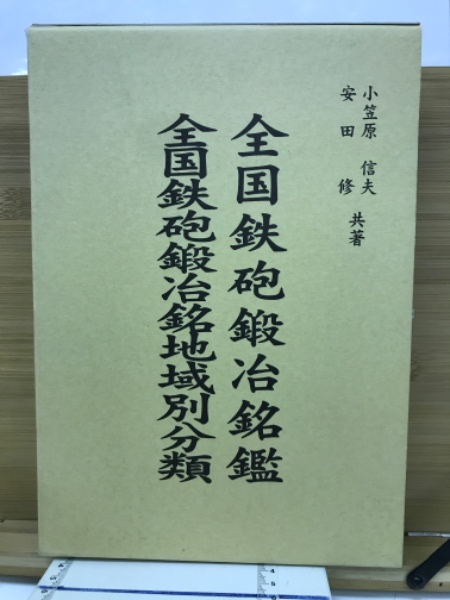 小笠原 信夫
安田 修 共著
全国鉄砲鍛冶銘鑑
全国鉄砲鍛冶銘地域別分類